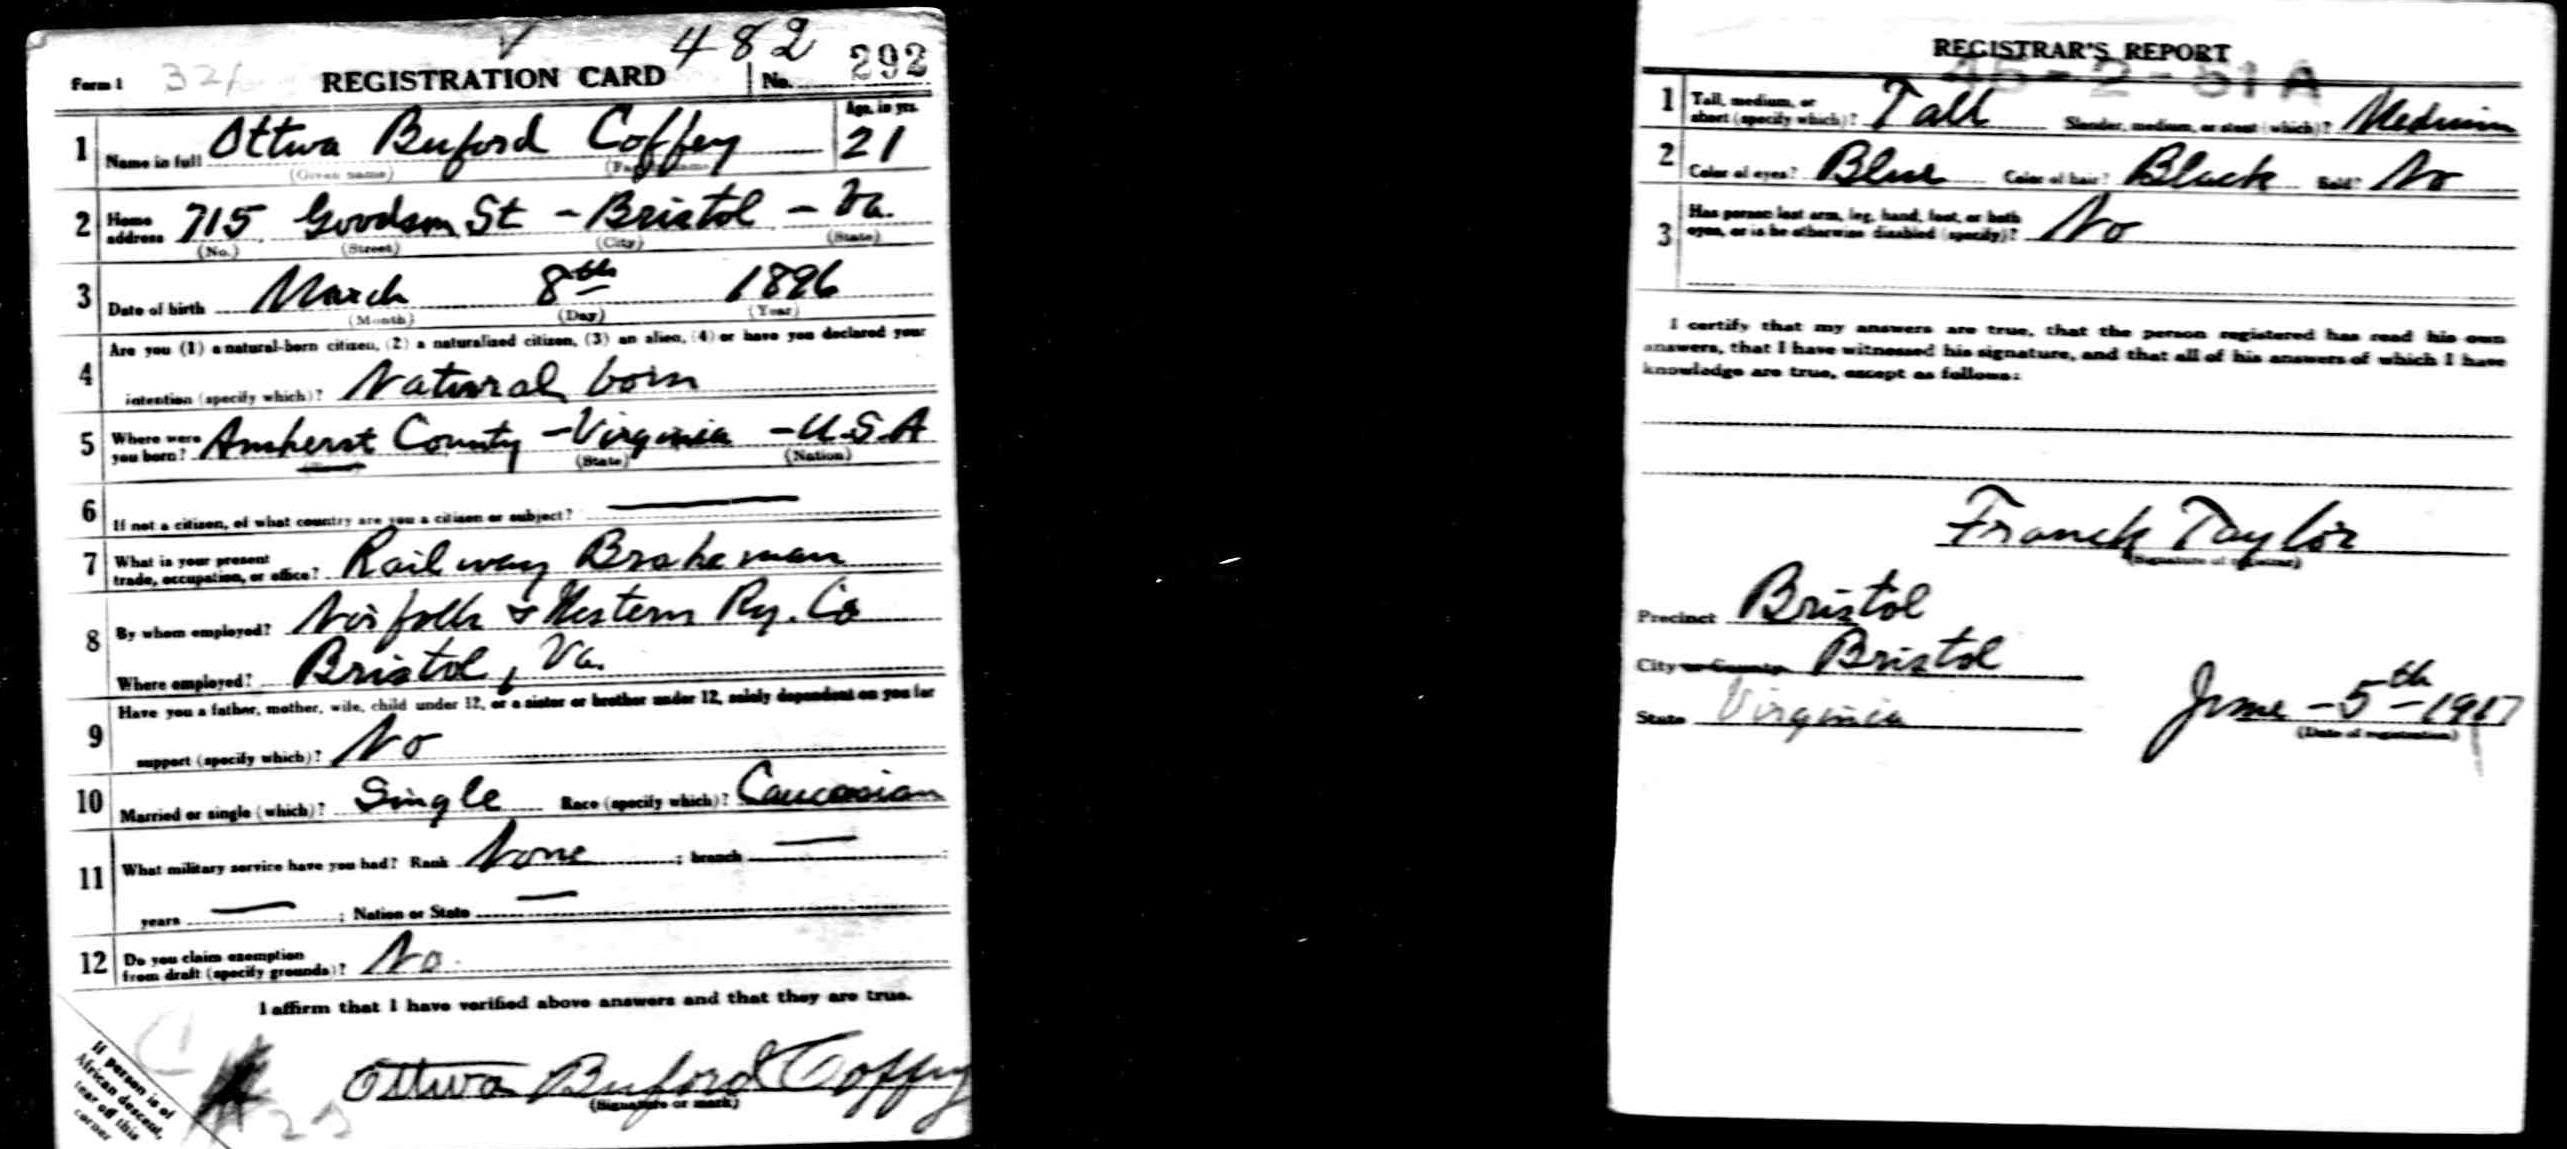 482
Form 1 REGISTRATION CARD No. 292
Age, in yrs.
1 Name in full Ottwa Buford Coffey 21
(Given name) (Family name)
2 Home address 715 Goodson St - Bristol - Va.
(No.) (Street) (City) (State)
3 Date of birth March 8th 1896
(Month) (Day) (Year)
Are you (1) a natural-born citizen, (2) a naturalized citizen, (3) an alien, (4) or have you declared your
4 intention (specify which)? Natural born
5 Where were you born? Amherst County - Virginia - U.S.A
(State) (Nation)
6 If not a citizen, of what country are you a citizen or subject?
7 What is your present trade, occupation, or office? Railway Brakeman
8 By whom employed? Norfolk & Western Ry. Co
Where employed? Bristol, Va.
Have you a father, mother, wife, child under 12, or a sister or brother under 12, solely dependent on you for
9 support (specify which)? No
10 Married or single (which)? Single Race (specify which)? Caucasian
11 What military service have you had? Rank None ; branch ;
years ; Nation or State
12 Do you claim exemption from draft (specify grounds)? No.
I affirm that I have verified above answers and that they are true.
Ottwa Buford Coffey
(Signature or mark)
If person is of
African descent,
tear off this
corner
REGISTRAR'S REPORT
45-2-51 A
1 Tall, medium, or short (specify which)? Tall Slender, medium, or stout (which)? Medium
2 Color of eyes? Blue Color of hair? Black Bald? No
3 Has person lost arm, leg, hand, foot, or both eyes, or is he otherwise disabled (specify)? No
I certify that my answers are true, that the person registered has read his own
answers, that I have witnessed his signature, and that all of his answers of which I have
knowledge are true, except as follows:
Franck Taylor
(Signature of registrar)
Precinct Bristol
City or County Bristol
State Virginia June - 5th - 1917
(Date of registration)